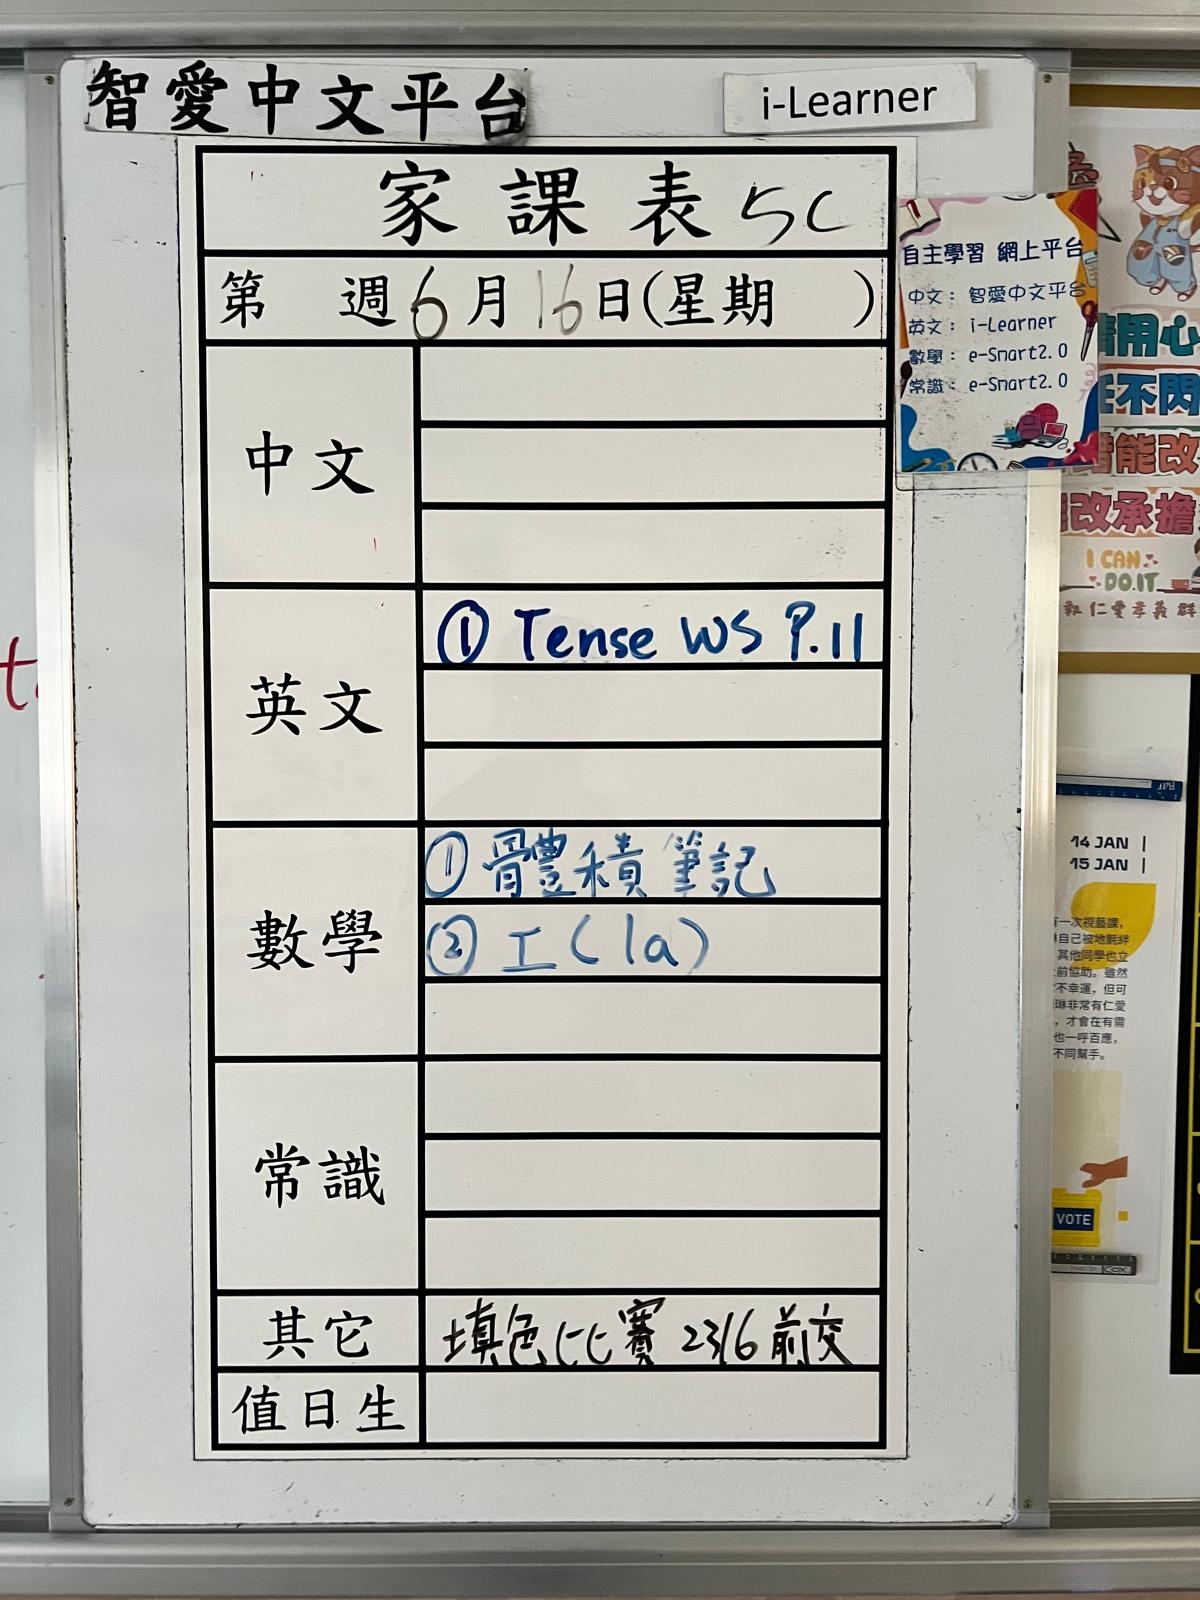 智愛中文平台
i-Learner
家課表 5C
第 週 6月16日(星期 )
中文
英文
① Tense WS P.11
數學
① 體積筆記
② 工(1a)
常識
其它
填色比賽 23/6 前交
值日生
自主學習 網上平台
中文： 智愛中文平台
英文： i-Learner
數學： e-Smart2.0
常識： e-Smart2.0
用心
不閃
能改
改承擔
I CAN
DO IT
仁愛孝義群
14 JAN
15 JAN
一次視藝課，
自己被地氈絆
其他同學也立
前協助。雖然
不幸運，但可
琳非常有仁愛
，才會在有需
也一呼百應，
不同幫手。
VOTE